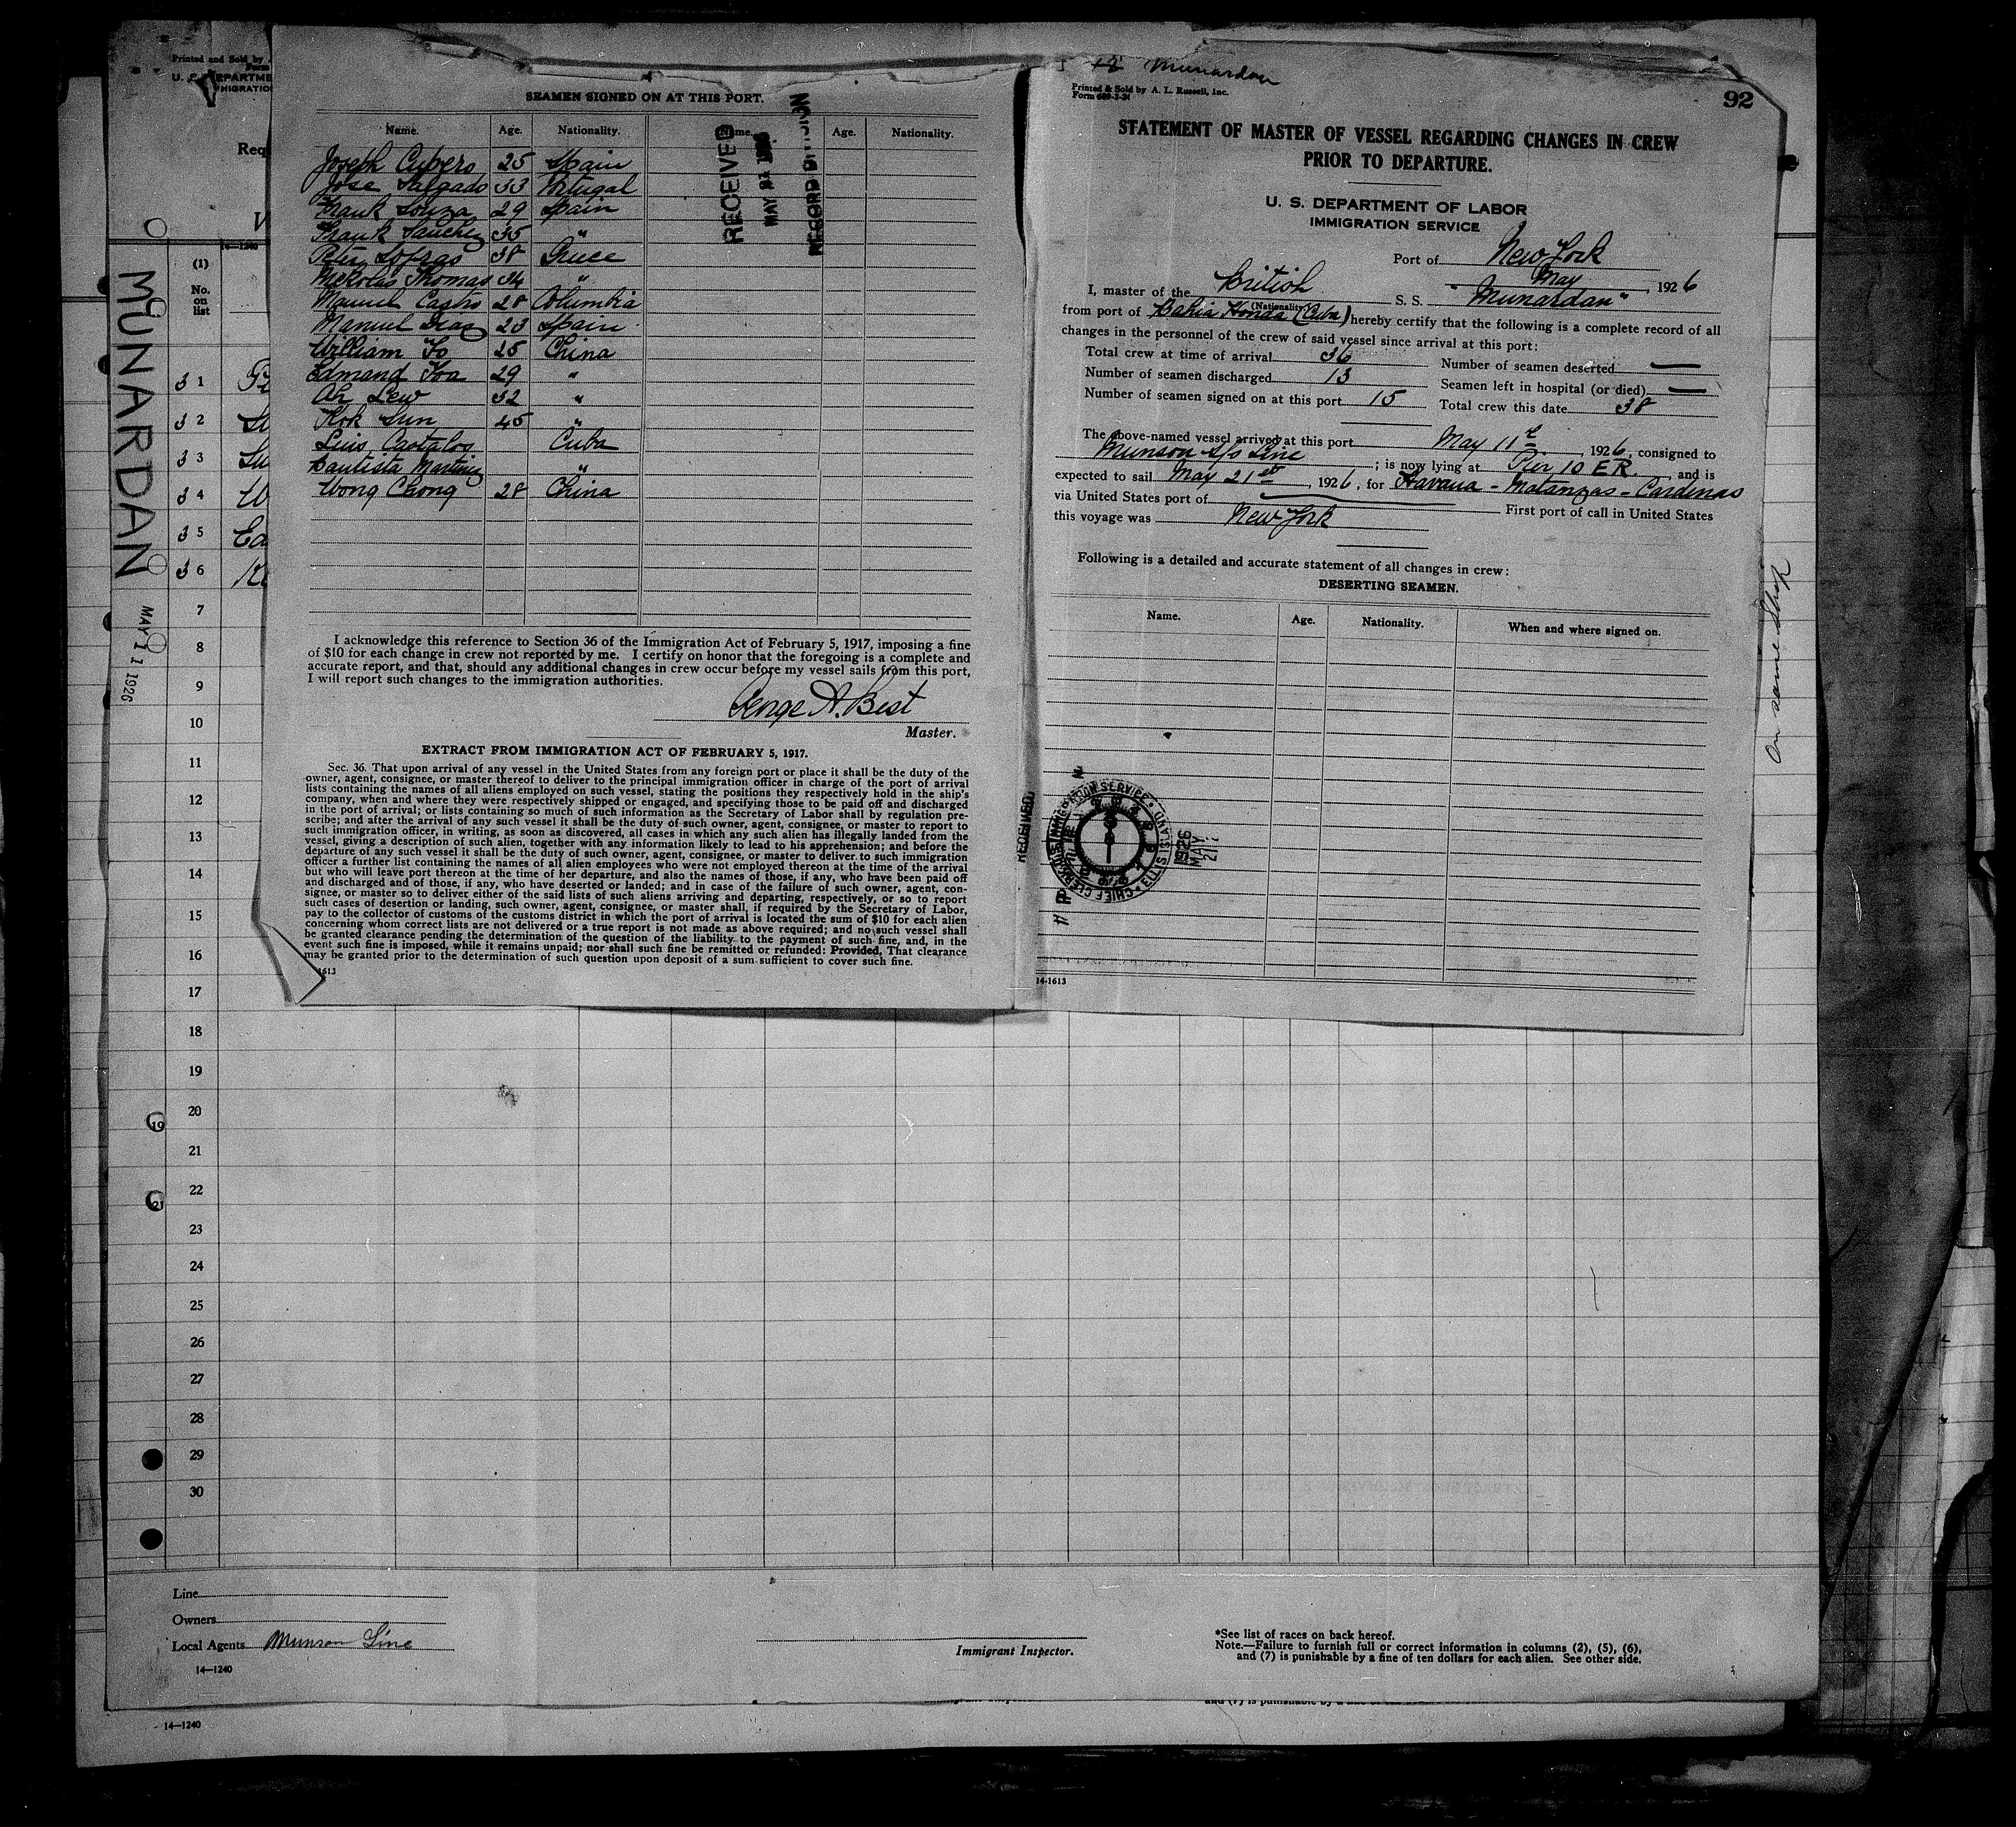 Printed and Sold by
Form
U. S. DEPARTME
MIGRATION
Req
V
14—1240
(1)
No.
on
list
MUNARDAN
MAY 11 1926
31
32
33
34 W
35
36
7
8
9
10
11
12
13
14
15
16
17
18
19
20
21
22
23
24
25
26
27
28
29
30
19
21
SEAMEN SIGNED ON AT THIS PORT.
Name. Age. Nationality. Name. Age. Nationality.
RECEIVED
MAY 21 1926
RECORD DIVISION
Joseph Cubero 25 Spain
Jose Salgado 33 Portugal
Frank Souza 29 Spain
Frank Sanchez 35 "
Peter Sofras 38 Greece
Nickolas Thomas 34 "
Manuel Castro 28 Columbia
Manuel Diaz 23 Spain
William Fo 25 China
Edmand Foa 29 "
Ah Lew 32 "
Kok Sun 45 "
Luis Cuba
Bautista Martinez "
Wong Chong 28 China
I acknowledge this reference to Section 36 of the Immigration Act of February 5, 1917, imposing a fine
of $10 for each change in crew not reported by me. I certify on honor that the foregoing is a complete and
accurate report, and that, should any additional changes in crew occur before my vessel sails from this port,
I will report such changes to the immigration authorities.
George A. Best
Master.
EXTRACT FROM IMMIGRATION ACT OF FEBRUARY 5, 1917.
Sec. 36. That upon arrival of any vessel in the United States from any foreign port or place it shall be the duty of the
owner, agent, consignee, or master thereof to deliver to the principal immigration officer in charge of the port of arrival
lists containing the names of all aliens employed on such vessel, stating the positions they respectively hold in the ship's
company, when and where they were respectively shipped or engaged, and specifying those to be paid off and discharged
in the port of arrival; or lists containing so much of such information as the Secretary of Labor shall by regulation pre-
scribe; and after the arrival of any such vessel it shall be the duty of such owner, agent, consignee, or master to report to
such immigration officer, in writing, as soon as discovered, all cases in which any such alien has illegally landed from the
vessel, giving a description of such alien, together with any information likely to lead to his apprehension; and before the
departure of any such vessel it shall be the duty of such owner, agent, consignee, or master to deliver to such immigration
officer a further list containing the names of all alien employees who were not employed thereon at the time of the arrival
but who will leave port thereon at the time of her departure, and also the names of those, if any, who have been paid off
and discharged and of those, if any, who have deserted or landed; and in case of the failure of such owner, agent, con-
signee, or master so to deliver either of the said lists of such aliens arriving and departing, respectively, or so to report
such cases of desertion or landing, such owner, agent, consignee, or master shall, if required by the Secretary of Labor,
pay to the collector of customs of the customs district in which the port of arrival is located the sum of $10 for each alien
concerning whom correct lists are not delivered or a true report is not made as above required; and no such vessel shall
be granted clearance pending the determination of the question of the liability to the payment of such fine, and, in the
event such fine is imposed, while it remains unpaid; nor shall such fine be remitted or refunded: Provided, That clearance
may be granted prior to the determination of such question upon deposit of a sum sufficient to cover such fine.
1613
12 Munardan
Printed & Sold by A. L. Russell, Inc.
Form 689-3-24
92
STATEMENT OF MASTER OF VESSEL REGARDING CHANGES IN CREW
PRIOR TO DEPARTURE.
U. S. DEPARTMENT OF LABOR
IMMIGRATION SERVICE
Port of New York
May , 1926
I, master of the British S. S. "Munardan"
(Nationality)
from port of Bahia Honda (Cuba) hereby certify that the following is a complete record of all
changes in the personnel of the crew of said vessel since arrival at this port:
Total crew at time of arrival 36 Number of seamen deserted —
Number of seamen discharged 13 Seamen left in hospital (or died) —
Number of seamen signed on at this port 15 Total crew this date 38
The above-named vessel arrived at this port May 11th , 1926, consigned to
Munson S/S Line ; is now lying at Pier 10 E.R. , and is
expected to sail May 21st , 1926, for Havana - Matanzas - Cardenas
via United States port of First port of call in United States
this voyage was New York
Following is a detailed and accurate statement of all changes in crew:
DESERTING SEAMEN.
Name. Age. Nationality. When and where signed on.
On same Ship
RECEIVED
1926 MAY 21
14-1613
Line
Owners
Local Agents Munson Line
14—1240
Immigrant Inspector.
*See list of races on back hereof.
Note.—Failure to furnish full or correct information in columns (2), (5), (6),
and (7) is punishable by a fine of ten dollars for each alien. See other side.
14—1240